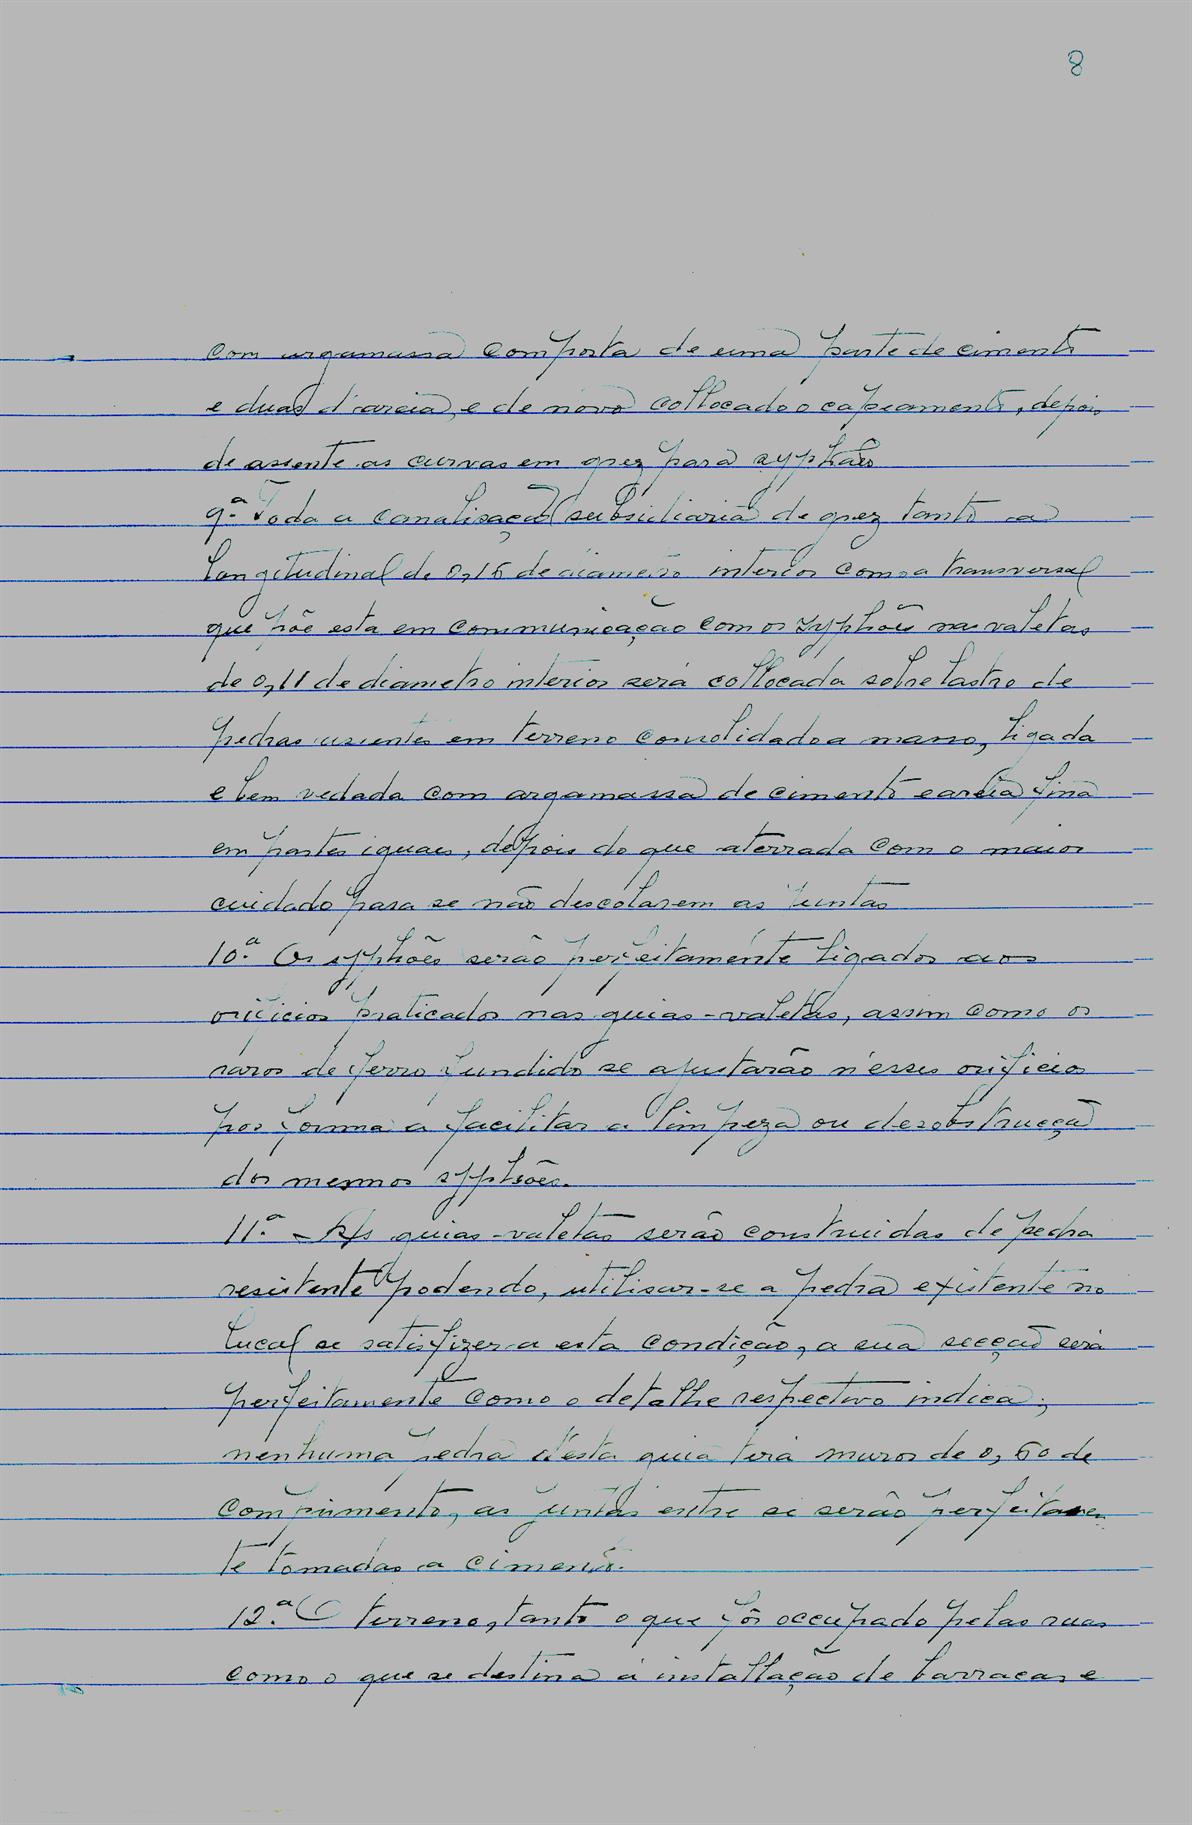 8
com argamassa composta de uma parte de cimento
e duas d'areia, e de novo collocado o capeamento, depois
de assente as curvas em grez para syphões
9.ª Toda a canalisação subsidiaria de grez tanto a
longitudinal de 0,15 de diametro interior como a transversal
que põe esta em communicação com os syphões nas valetas
de 0,11 de diametro interior será collocada sobre lastro de
pedras assentes em terreno consolidado a masso, ligada
e bem vedada com argamassa de cimento e areia fina
em partes iguaes, depois do que aterrada com o maior
cuidado para se não descolarem as juntas
10.ª Os syphões serão perfeitamente ligados aos
orificios praticados nas guias-valetas, assim como os
raros de ferro fundido se ajustarão n'esses orificios
por forma a facilitar a limpeza ou desobstrucção
dos mesmos syphões.
11.ª - As guias-valetas serão construidas de pedra
resistente podendo, utilisar-se a pedra existente no
local se satisfizer a esta condição, a sua secção será
perfeitamente como o detalhe respectivo indica;
nenhuma pedra d'esta guia terá menos de 0,60 de
comprimento, as juntas entre si serão perfeitamen
te tomadas a cimento.
12.ª O terreno, tanto o que fôr occupado pelas ruas
como o que se destina á installação de barracas, e